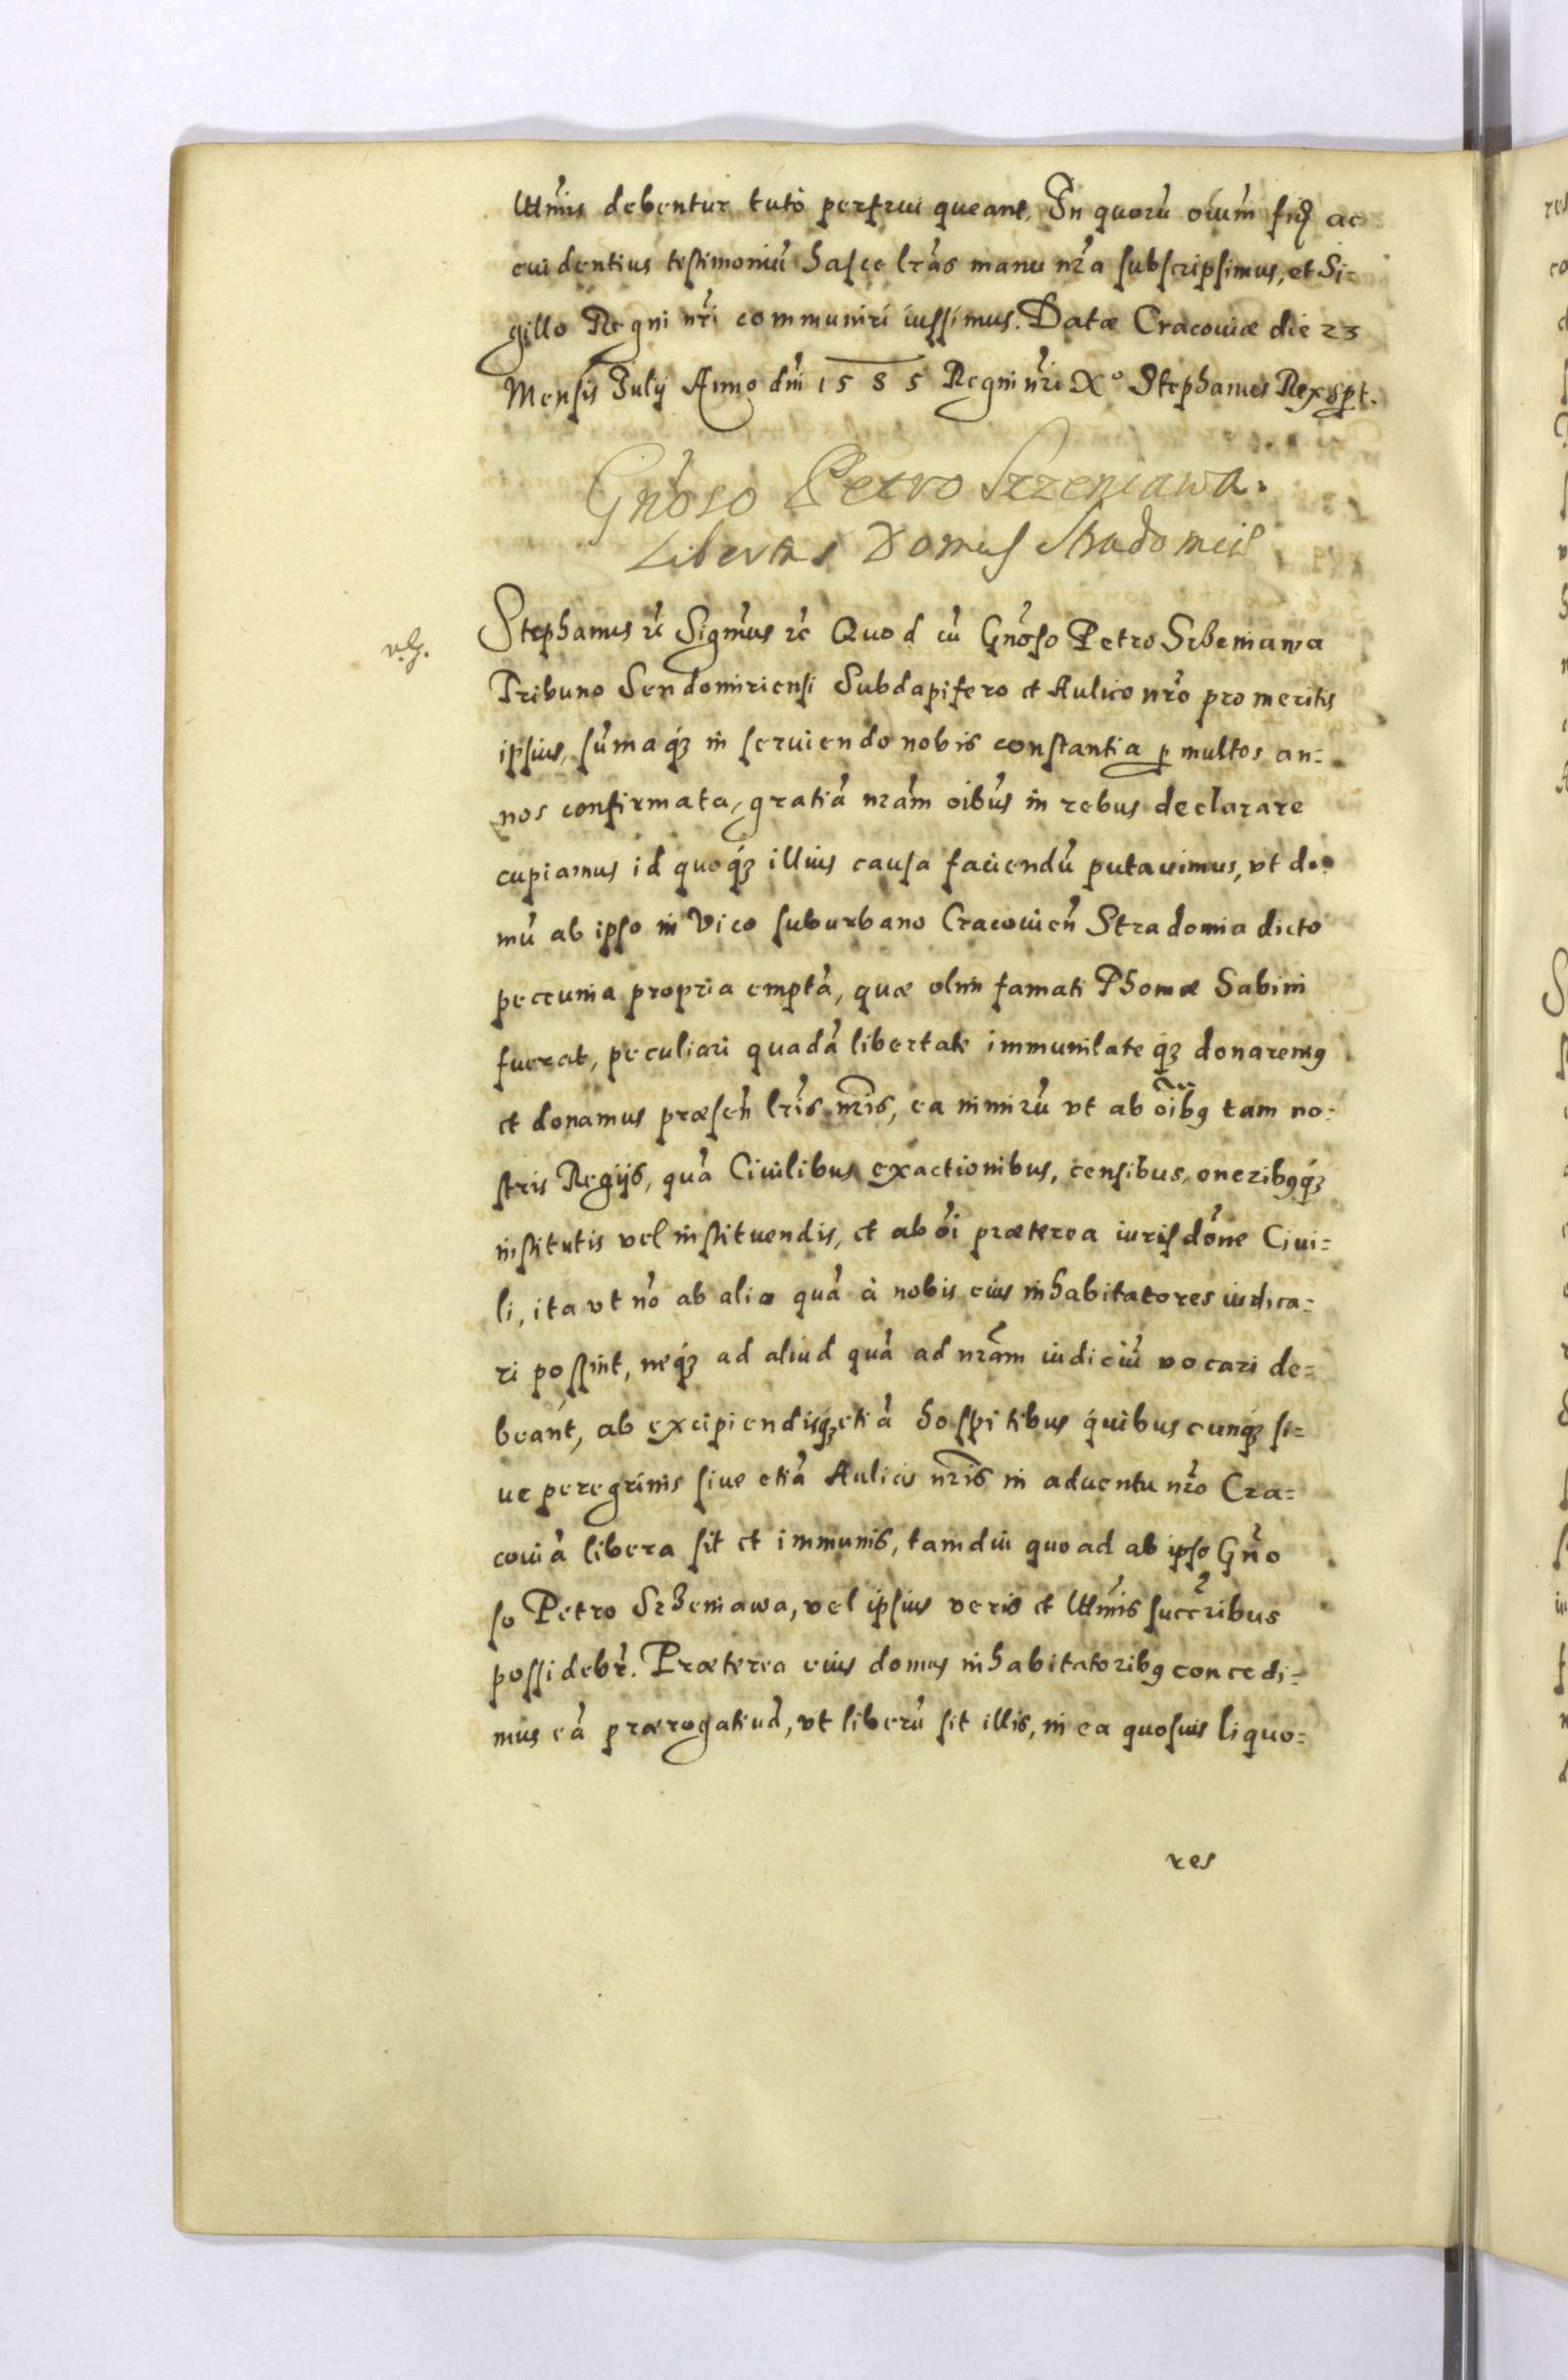 lttmis debentur tuto perfrui queant. In quorũ oium fidē ac
euidentius testimoniũ hasce lras manu nra subscripsimus, et Si-
gillo Regni nri communiri iussimus. Datæ Cracouiæ die 23
Mensis Iulÿ Anno dni 1585 Regni nri X° Stephanus Rex spt.
Gnoso Petro Srzeniawa.
Libertas Domus Stradomiæ
v.G.
Stephanus rc Sigmus rc Quod cũ Gnoso Petro Srzeniawa
Tribuno Sendomiriensi Subdapifero et Aulico nro pro meritis
ipsius, sũmaq; in seruiendo nobis constantia p multos an=
nos confirmata, gratiã nram oibus in rebus declarare
cupiamus id quoq; illius causa faciendũ putauimus, vt do
mũ ab ipso in Vico suburbano Cracouien Stradomia dicto
peccunia propria emptã, quæ olim famati Thomæ Sabini
fuerat, peculiari quadã libertate immunitateq; donaremus
et donamus præsen lris nris, ea nimirũ vt ab oibus tam no-
stris Regÿs, quã Ciuilibus exactionibus, censibus, oneribusq;
institutis vel instituendis, et ab oi præterea iurisdone Ciui=
li, ita vt no ab alio quã à nobis eius inhabitatores iudica=
ri possint, neq; ad aliud quã ad nram iudiciũ vocari de=
beant, ab excipiendisq; etiã hospitibus quibuscunq; si=
ue peregrinis siue etiã Aulicis nris in aduentu nro Cra=
couiã libera sit et immunis, tamdiu quoad ab ipso Gno
so Petro Srzeniawa, vel ipsius veris et lttmis succribus
possidebr. Præterea eius domus inhabitatoribus concedi=
mus eã prærogatiuã, vt liberũ sit illis, in ea quosuis liquo=
res